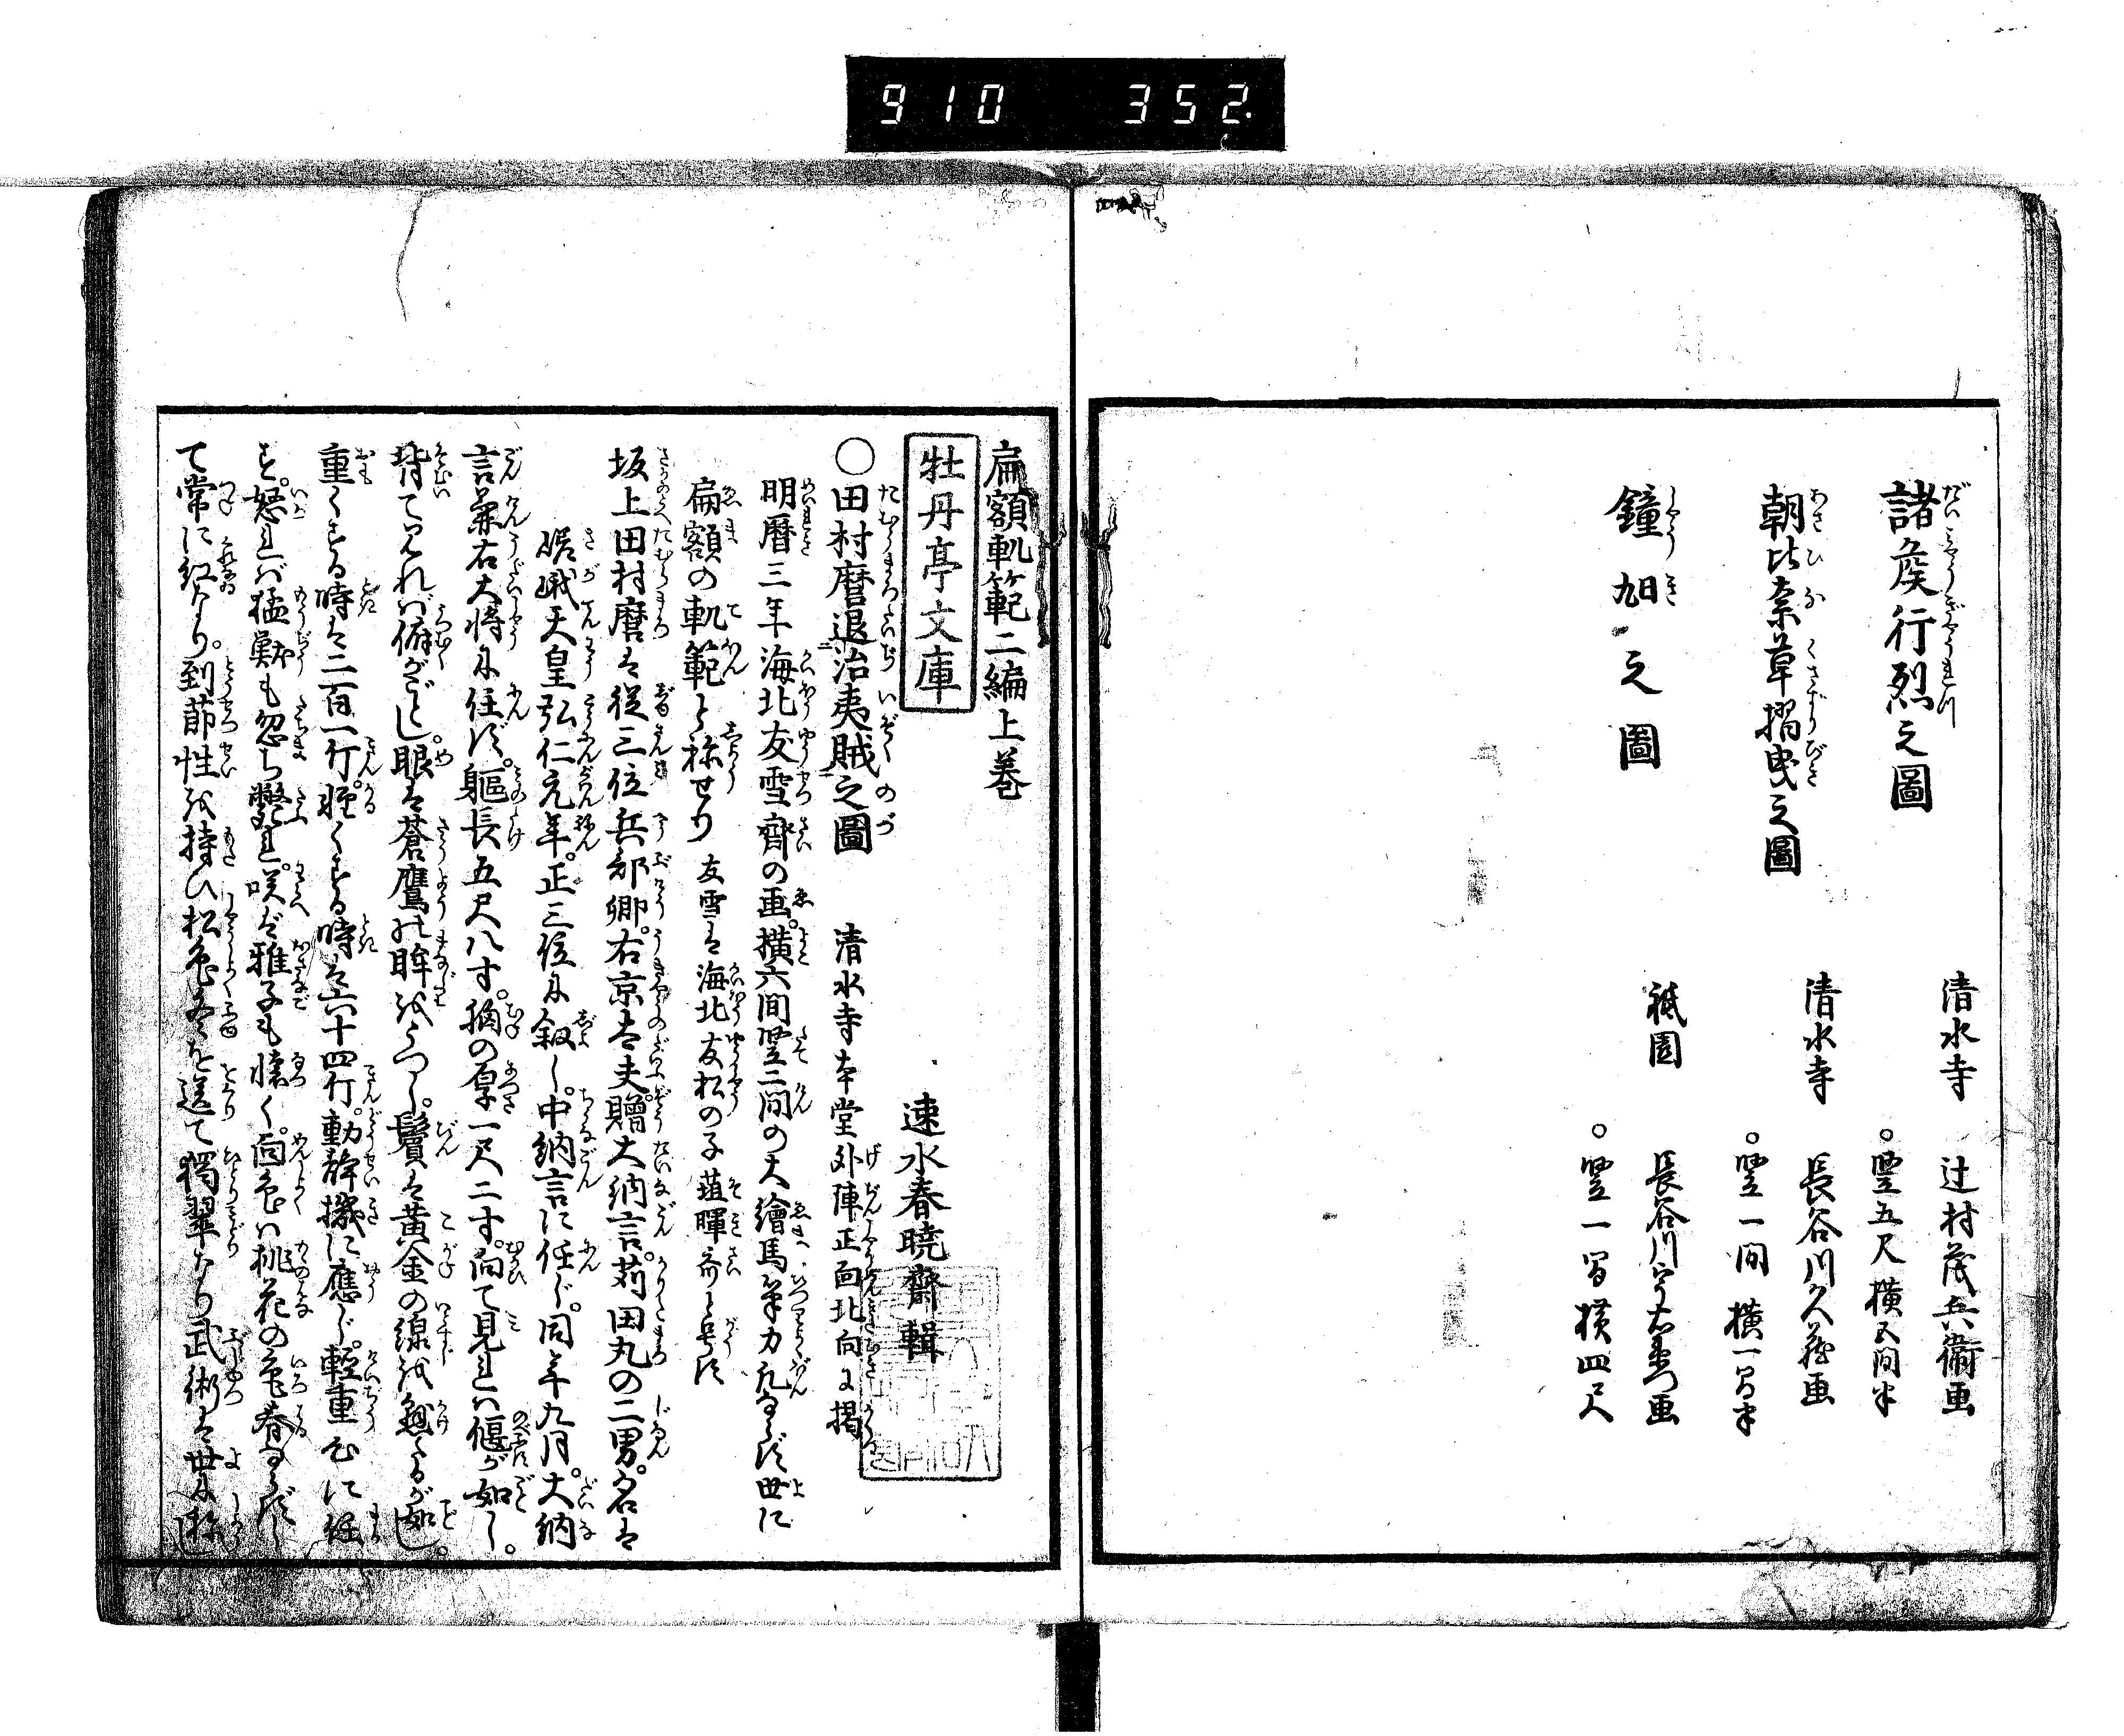 910 352
諸矦行烈之圖
清水寺 辻村茂兵衞画
○竪五尺横五間半
朝比奈草摺曳之圖
清水寺 長谷川久藏画
○竪一間横一間半
鐘旭之圖
祇園 長谷川
○竪一間横四尺
扁額軌範二編上巻
牡丹亭文庫
速水春暁齋輯
○田村麿退治夷賊之圖 清水寺本堂外陣正面北向に掲
明暦三年海北友雪齋の画。横六間竪三間の大繪馬筆力凡ならず世に
扁額の軌範と称せり 友雪は海北友松の子 暉斎と号す
坂上田村麿は従三位兵部卿。右京大夫。贈大納言。苅田丸の二男。名は
嵯峨天皇弘仁元年。正三位に叙し。中納言に任ず。同年九月。大納
言兼右大将に任ず。躯長五尺八寸。胸の厚一尺二寸。向て見れは偃が如し。
背てみれば俯がごとし。眼は蒼鷹の眸をうつし。鬢は黄金の線を懸るが如し。
重くする時は二百一斤。軽くする時は六十四斤。動静機に應じ。軽重心に任
す。怒れば猛獣も忽ち斃れ。咲ば稚子も懐く。面色は桃花の色春ならずし
て常に紅なり。到節性を持ひ松色冬を送て獨翠なり武術は世に称し